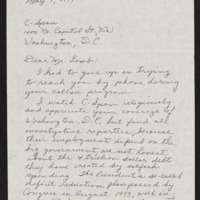 May 4, 1994
C-Span
400 No. Capitol St. NW
Washington, D.C
Dear Mr. Lamb:
I had to give up in trying
to reach you by phone during
your called program.
I watch C-Span religiously
and appreciate your coverage of
Washington, D.C., but find all
investigative reporters, because
their employment depend on the
big government, are not honest
about the 4 trillion dollar debt
they have created by selfish
spending. The President's so-called
deficit reduction plan passed by
Congress in August 1993, will in